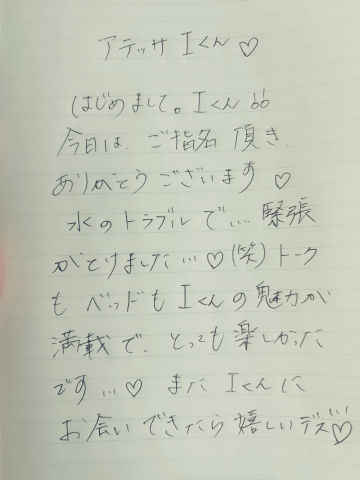 アテッサ Iくん♡
はじめまして。Iくん!!
今日は、ご指名頂き、
ありがとうございます♡
水のトラブルで‥‥緊張
がとけました…♡(笑)トーク
も ベッドも Iくんの魅力が
満載で、とっても楽しかった
です…♡ また Iくんに
お会いできたら嬉しいデス♡